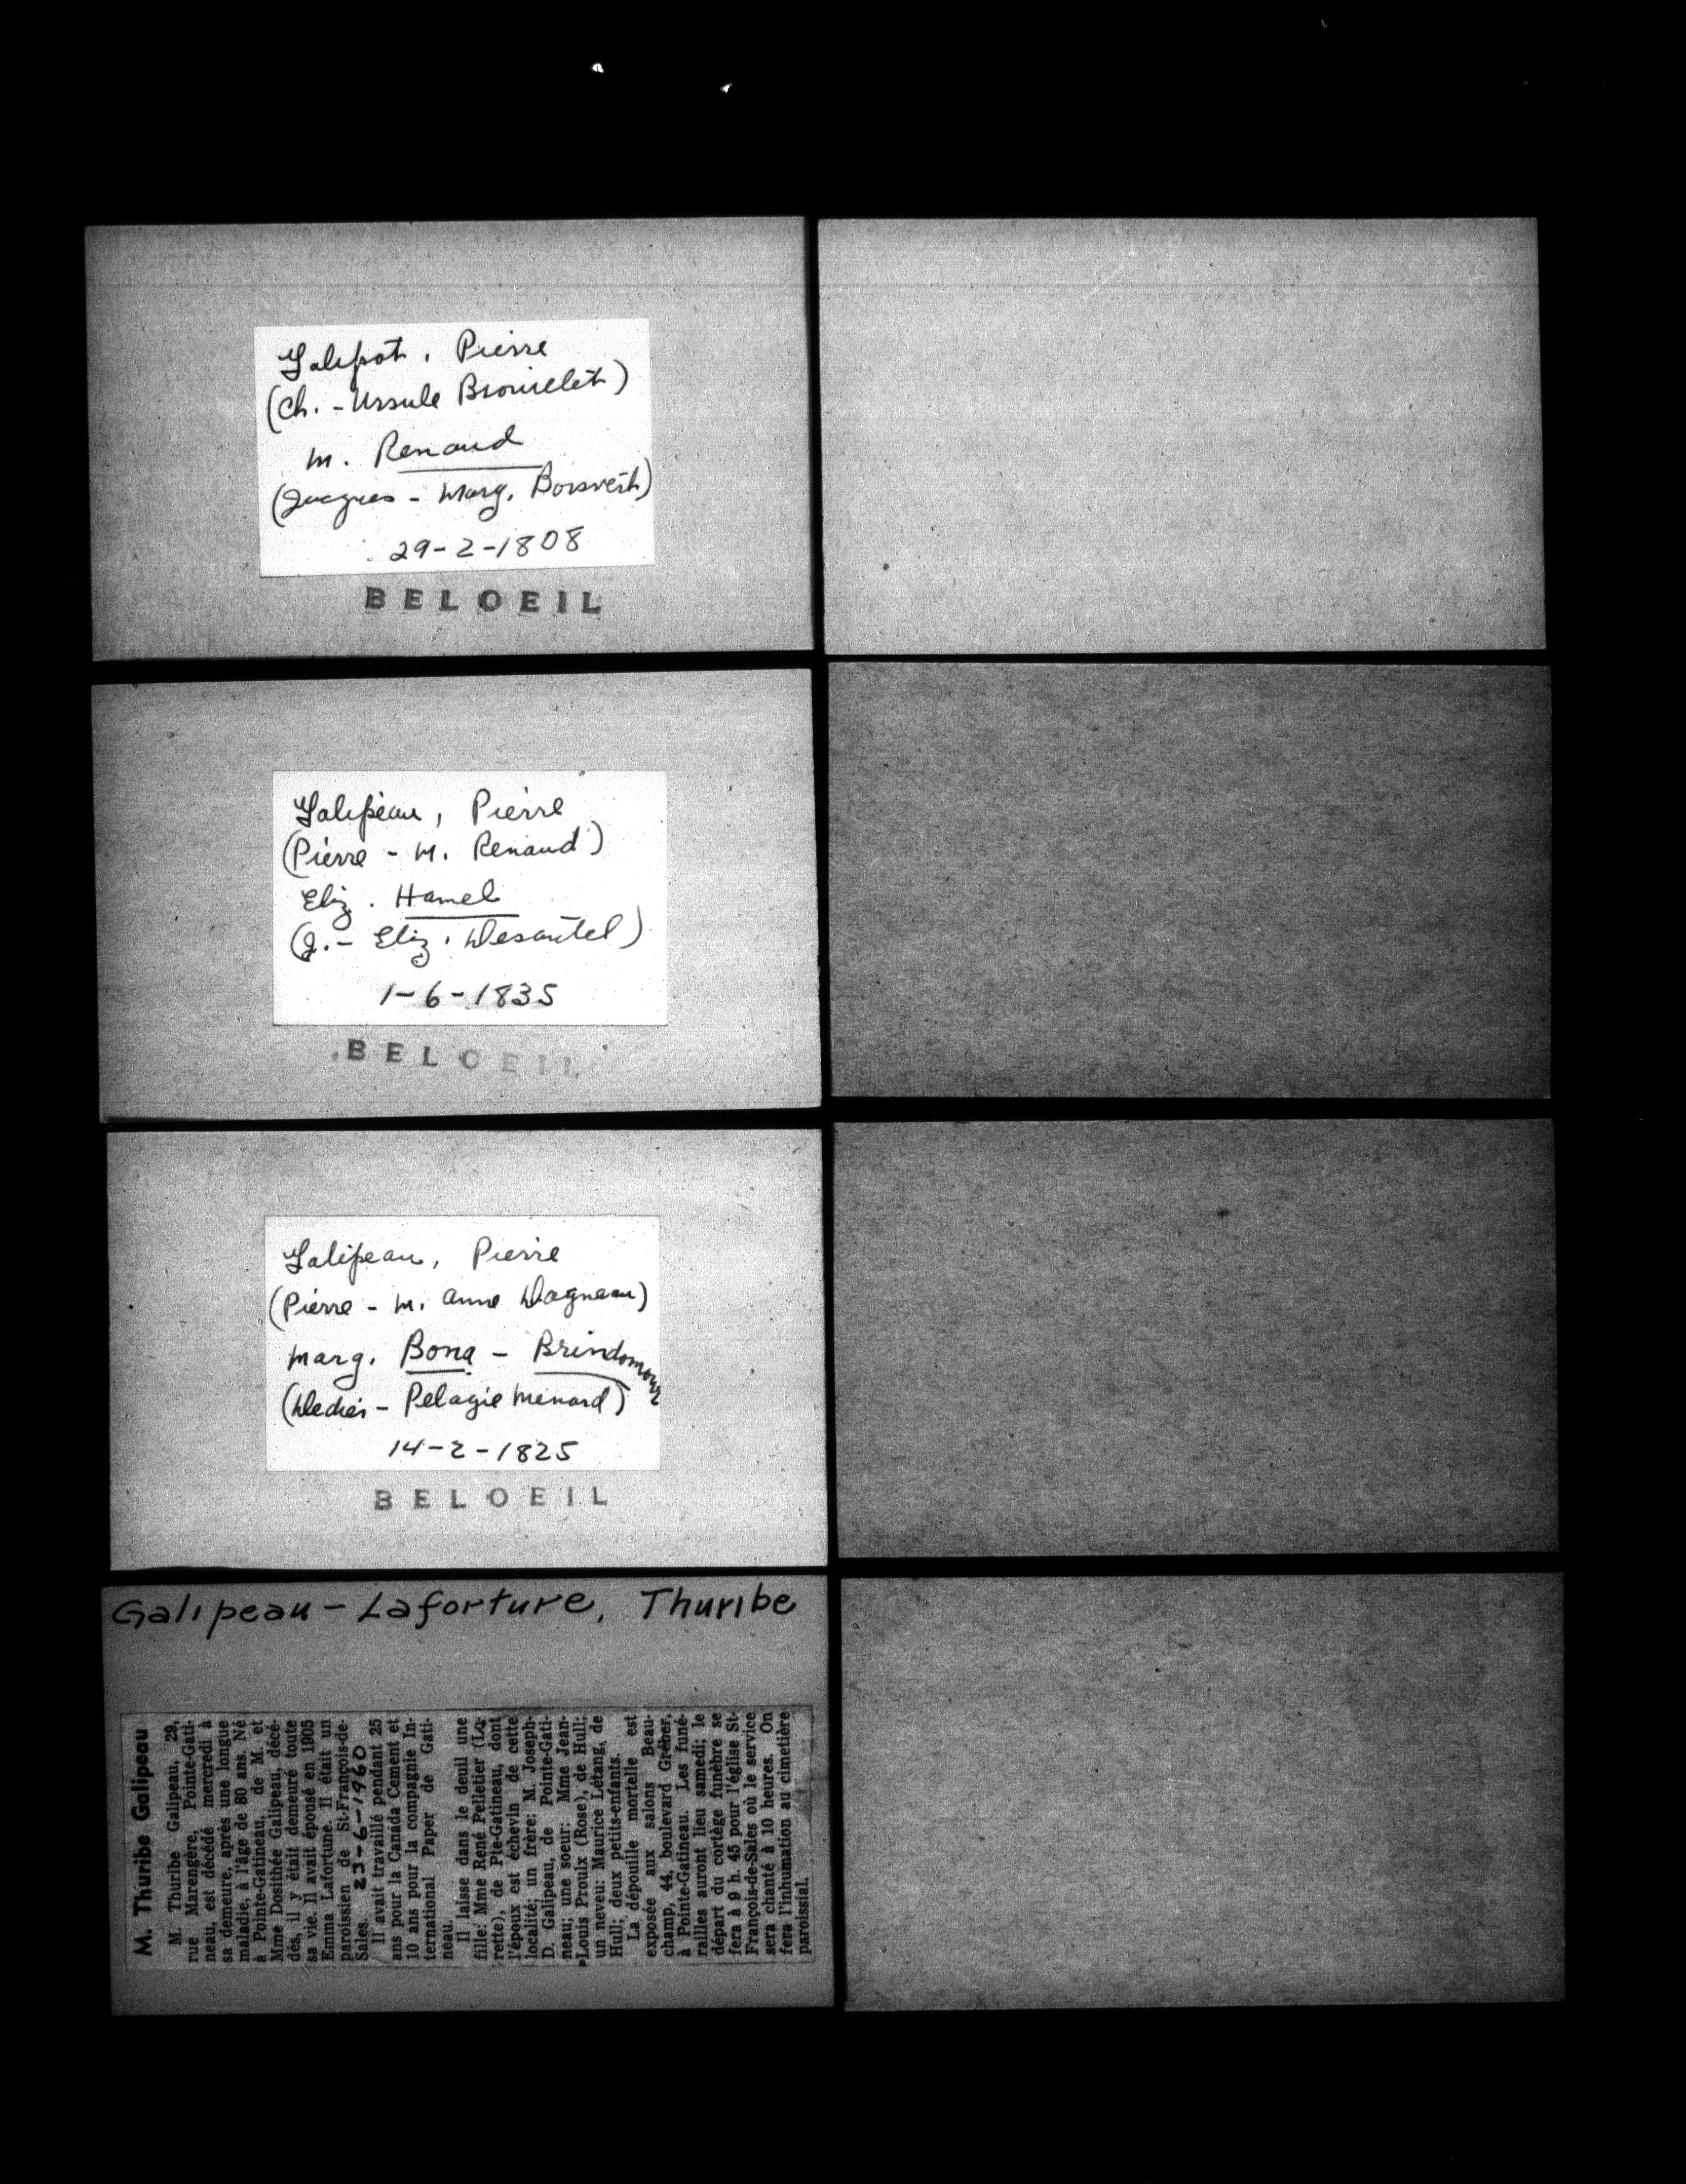 Galipot, Pierre
(Ch. - Ursule Brouillet)
M. Renaud
(Jacques - Marg. Boisvert)
29-2-1808
BELOEIL
Galipeau, Pierre
(Pierre - M. Renaud)
Eliz. Hamel
(J. - Eliz. Desautel)
1-6-1835
BELOEIL
Galipeau, Pierre
(Pierre - M. Anne Dagneau)
Marg. Bona - Brindamour
- Pelagie Menard)
14-2-1825
BELOEIL
Galipeau - Laforture, Thuribe
M. Thuribe Galipeau
M. Thuribe Galipeau, 29,
rue Marengère, Pointe-Gati-
neau, est décédé mercredi à
sa demeure, après une longue
maladie, à l'âge de 80 ans. Né
à Pointe-Gatineau, de M. et
Mme Dosithée Galipeau, décé-
dés, il y était demeuré toute
sa vie. Il avait épousé en 1905
Emma Lafortune. Il était un
paroissien de St-François-de-
Sales. 23-6-1960
Il avait travaillé pendant 25
ans pour la Canada Cement et
10 ans pour la compagnie In-
ternational Paper de Gati-
neau.
Il laisse dans le deuil une
fille: Mme René Pelletier (Lo-
rette), de Pte-Gatineau, dont
l'époux est échevin de cette
localité; un frère: M. Joseph-
D. Galipeau, de Pointe-Gati-
neau; une soeur: Mme Jean-
Louis Proulx (Rose), de Hull;
un neveu: Maurice Létang, de
Hull; deux petits-enfants.
La dépouille mortelle est
exposée aux salons Beau-
champ, 44, boulevard Gréber,
à Pointe-Gatineau. Les funé-
railles auront lieu samedi; le
départ du cortège funèbre se
fera à 9 h. 45 pour l'église St-
François-de-Sales où le service
sera chanté à 10 heures. On
fera l'inhumation au cimetière
paroissial.